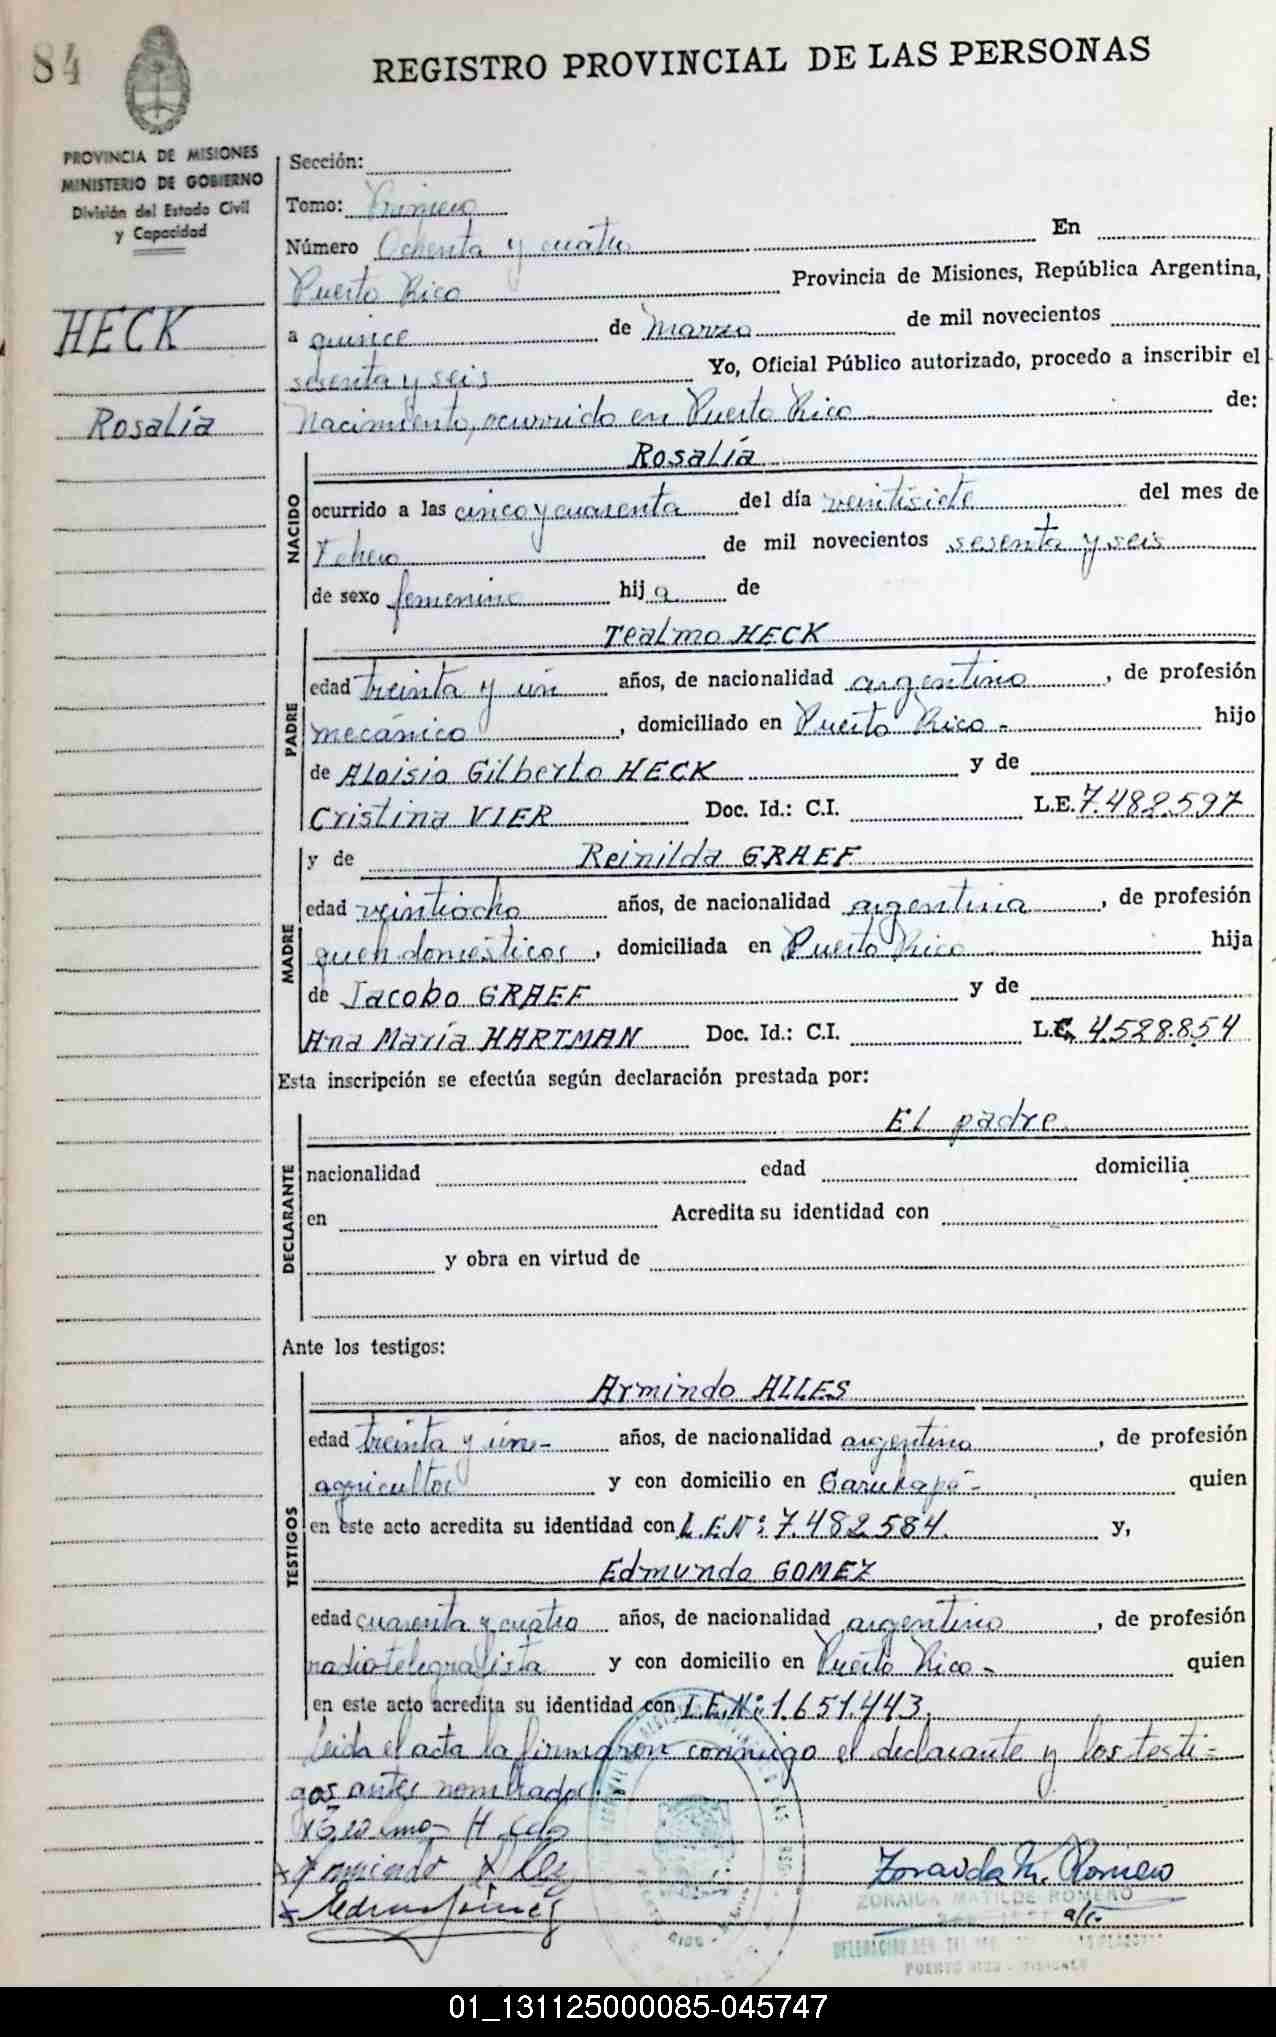 84
REGISTRO PROVINCIAL DE LAS PERSONAS
PROVINCIA DE MISIONES
MINISTERIO DE GOBIERNO
División del Estado Civil
y Capacidad
HECK
Rosalía
Sección:
Tomo: Primero
Número Ochenta y cuatro En
Puerto Rico Provincia de Misiones, República Argentina,
a quince de marzo de mil novecientos
sesenta y seis Yo, Oficial Público autorizado, procedo a inscribir el
Nacimiento, ocurrido en Puerto Rico de:
NACIDO
Rosalía
ocurrido a las cinco y cuarenta del día veintisiete del mes de
de mil novecientos sesenta y seis
de sexo femenino hija de
PADRE
Tealmo HECK
edad treinta y un años, de nacionalidad argentino, de profesión
mecánico, domiciliado en Puerto Rico - hijo
de Aloisio Gilberto HECK y de
Cristina VIER Doc. Id.: C.I. L.E. 7.482.597
MADRE
y de Reinilda GRAEF
edad veintiocho años, de nacionalidad argentina, de profesión
queh domésticos, domiciliada en Puerto Rico hija
de Jacobo GRAEF y de
Ana María HARTMAN Doc. Id.: C.I. L.C. 4.528.854
Esta inscripción se efectúa según declaración prestada por:
DECLARANTE
El padre
nacionalidad edad domicilia
en Acredita su identidad con
y obra en virtud de
Ante los testigos:
TESTIGOS
Armindo ALLES
edad treinta y un- años, de nacionalidad argentino, de profesión
agricultor y con domicilio en Garuhapé- quien
en este acto acredita su identidad con L.E.Nº: 7.482.584. y,
Edmundo GOMEZ
edad cuarenta y cuatro años, de nacionalidad argentino, de profesión
radiotelegrafista y con domicilio en Puerto Rico - quien
en este acto acredita su identidad con L.E.Nº: 1.651.443.
Leida el acta la firmaron conmigo el declarante y los testi-
gos antes nombrados.
Zoraida M. Romero
ZORAIDA MATILDE ROMERO
a/c.
PUERTO RICO - MISIONES
01_131125000085-045747